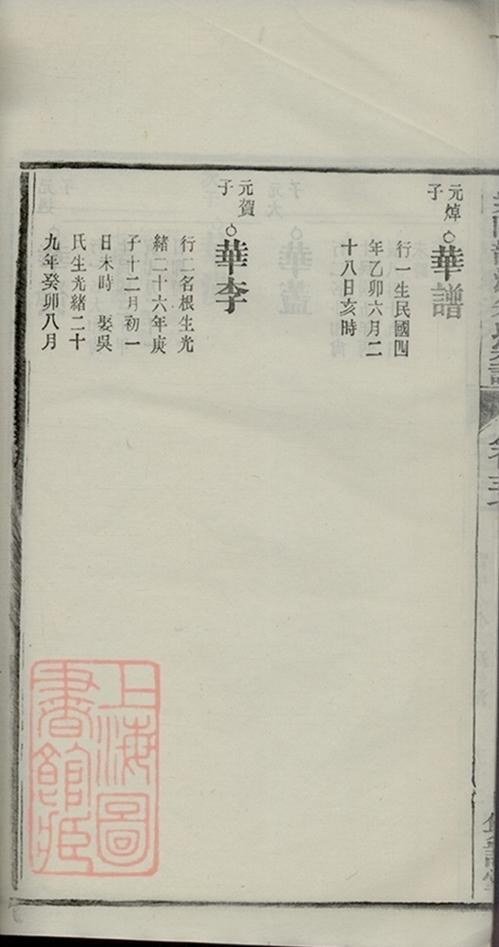 元焯
子
華譜
行一生民國四
年乙卯六月二
十八日亥時
元賀
子
華李
行二名根生光
緒二十六年庚
子十二月初一
日未時 娶吳
氏生光緒二十
九年癸卯八月
上海圖
書館藏